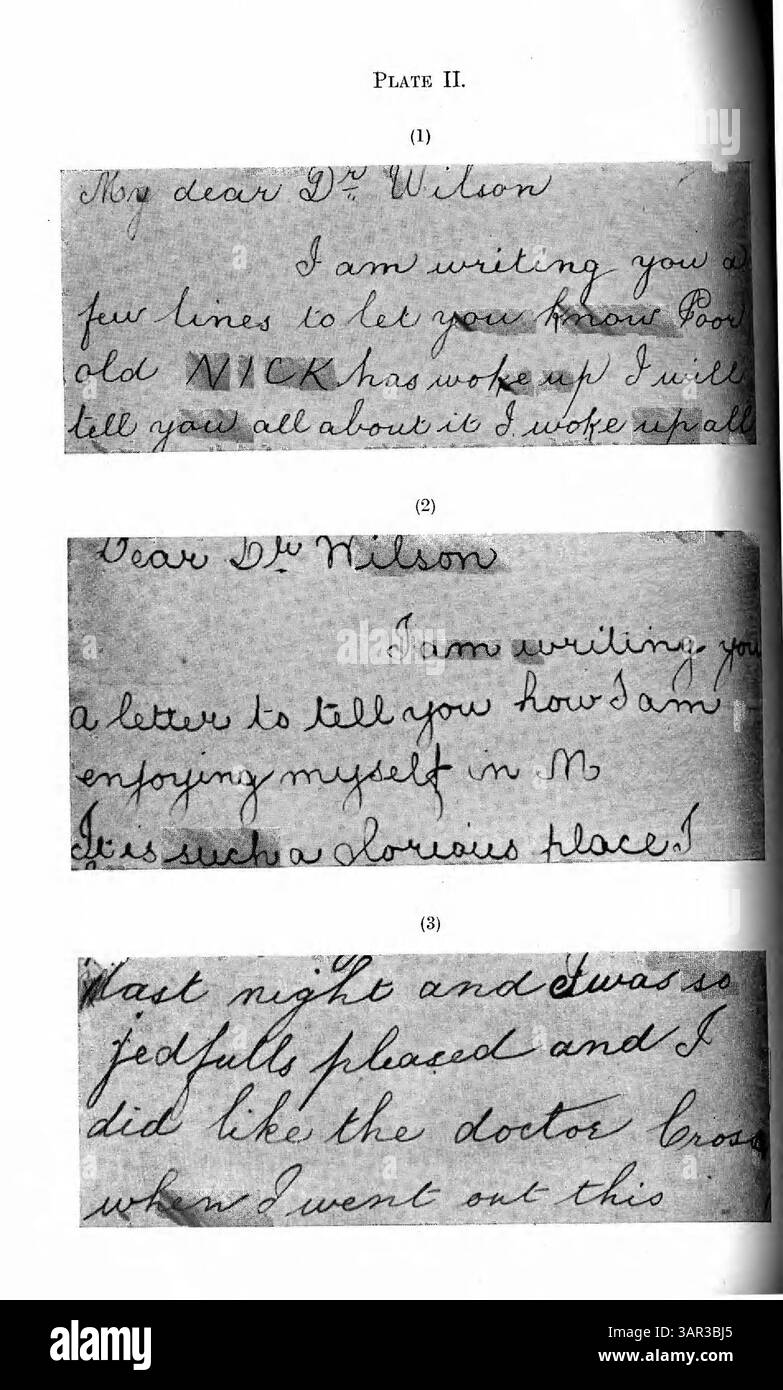 PLATE II.
(1)
My dear Dr. Wilson
I am writing you a
few lines to let you know Poor
old NICK has woke up I will
tell you all about it I woke up all
(2)
Dear Dr. Wilson
I am writing you
a letter to tell you how I am
enjoying myself in M
It is such a glorious place I
(3)
last night and I was so
jedfulls pleased and I
did like the doctor Cross
when I went out this
alamy
alamy
Image ID: 3AR3BJ5
www.alamy.com